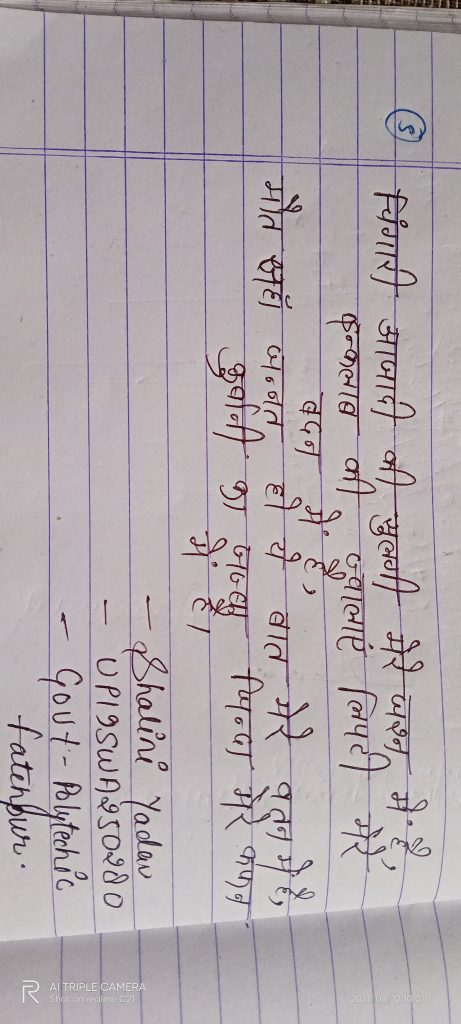 5
चिंगारी आजादी की सुलगी मेरे जश्न में है,
इन्कलाब की ज्वालाएं लिपटी मेरे
बदन में है,
मौत जहां जन्नत हो ये बात मेरे वतन में है,
कुर्बानी का जज्बा जिन्दा मेरे कफन
में है।
- Shalini Yadav
- UP19SWA250280
- Govt- Polytechic
fatehpur.
AI TRIPLE CAMERA
Shot on realme C21
2021/08/12 10:01